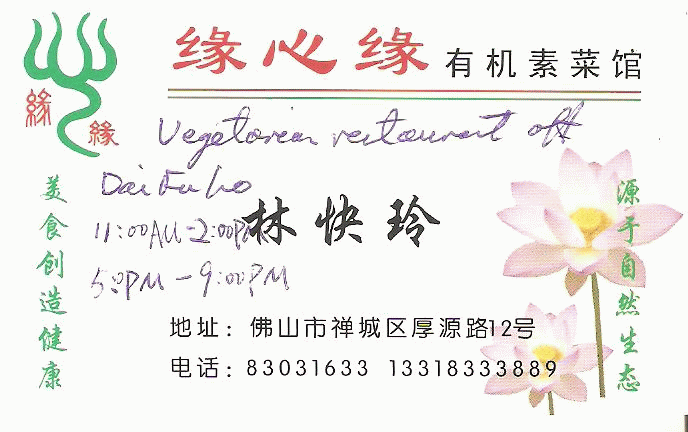 缘心缘 有机素菜馆
緣
緣
Vegetarian restaurant off
Dai Fu Lo
11:00AM-2:00PM
5:PM-9:00PM
林快玲
美食创造健康
源于自然生态
地址：佛山市禅城区厚源路12号
电话：83031633 13318333889